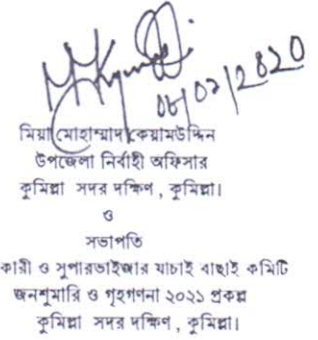 06/02/2020
মিয়া মোহাম্মাদ কেয়ামউদ্দিন
উপজেলা নির্বাহী অফিসার
কুমিল্লা সদর দক্ষিণ , কুমিল্লা।
ও
সভাপতি
কারী ও সুপারভাইজার যাচাই বাছাই কমিটি
জনশুমারি ও গৃহগণনা ২০২১ প্রকল্প
কুমিল্লা সদর দক্ষিণ , কুমিল্লা।